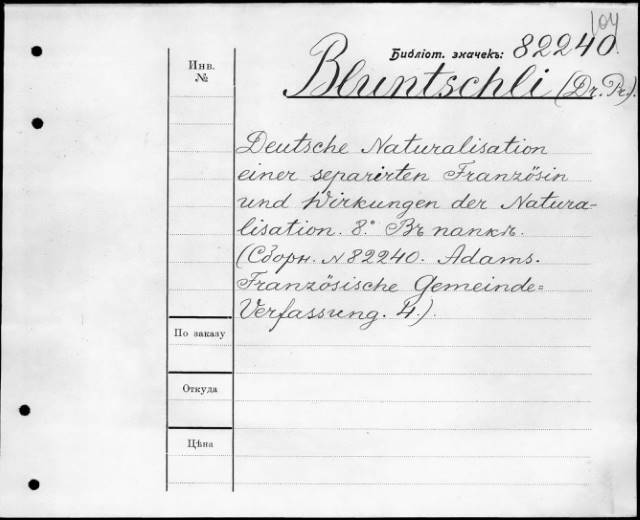 104
Библіот. значекъ: 82240.
Инв.
№
Bluntschli (Dr. Pr.).
Deutsche Naturalisation
einer separirten Französin
und Wirkungen der Natura-
lisation. 8.° Въ папкѣ.
(Сборн. № 82240. Adams.
Französische Gemeinde=
Verfassung. 4.)
По заказу
Откуда
Цѣна